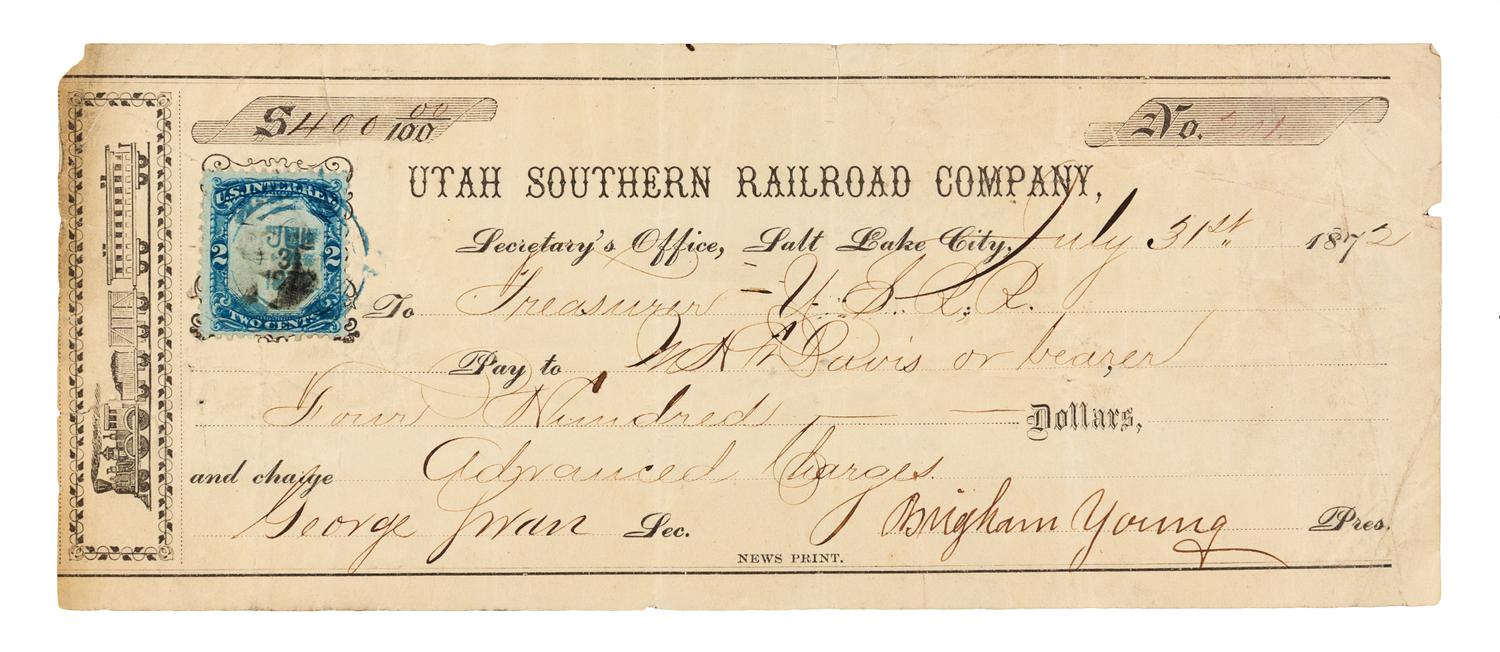 $400 00/100 No.
UTAH SOUTHERN RAILROAD COMPANY,
Secretary's Office, Salt Lake City, July 31st 1872
U.S. INTER. REV.
JUL
31
2 2
TWO CENTS
To Treasurer U. S. R. R.
Pay to Davis or bearer
Four Hundred Dollars,
and charge Advanced Charges.
George Swan Sec. Brigham Young Pres.
NEWS PRINT.